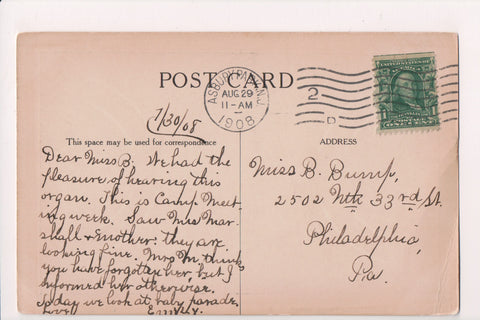 POST CARD
ASBURY PARK, N.J.
AUG. 29
11-AM
1908
2
D
7/30/08
This space may be used for correspondence
ADDRESS
Dear Miss B. We had the
pleasure of hearing this
organ. This is Camp Meet-
ing week. Saw Mrs Mar-
shall & another; they are
looking fine. Mrs M. thinks
you have forgotten her, but I
informed her otherwise.
Today we look at baby parade.
Love
Miss B. Bump,
2502 Nth 33rd St.
Philadelphia,
Pa.